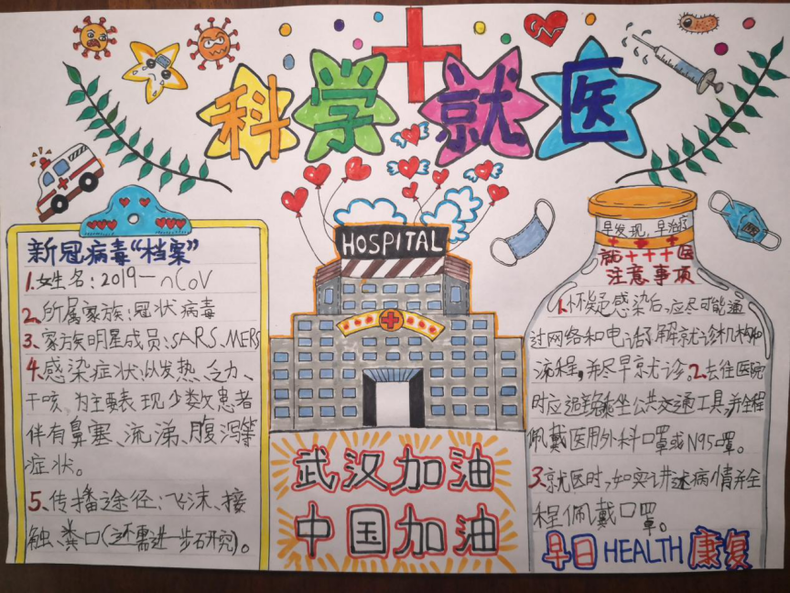 科学就医
新冠病毒“档案”
1.姓名:2019-nCoV
2.所属家族:冠状病毒
3、家族明星成员:SARS、MERS
4.感染症状:以发热、乏力、
干咳为主要表现少数患者
伴有鼻塞、流涕、腹泻等
症状。
5、传播途径:飞沫、接
触、粪口(还需进一步研究)。
HOSPITAL
武汉加油
中国加油
早发现,早治医
就+++医
注意事项
1.怀疑感染后,应尽可能通
过网络和电话了解就诊机构和
流程,并尽早就诊。2.去往医院
时应避免乘坐公共交通工具,并全程
佩戴医用外科口罩或N95口罩。
3.就医时,如实讲述病情并全
程佩戴口罩。
早日HEALTH康复